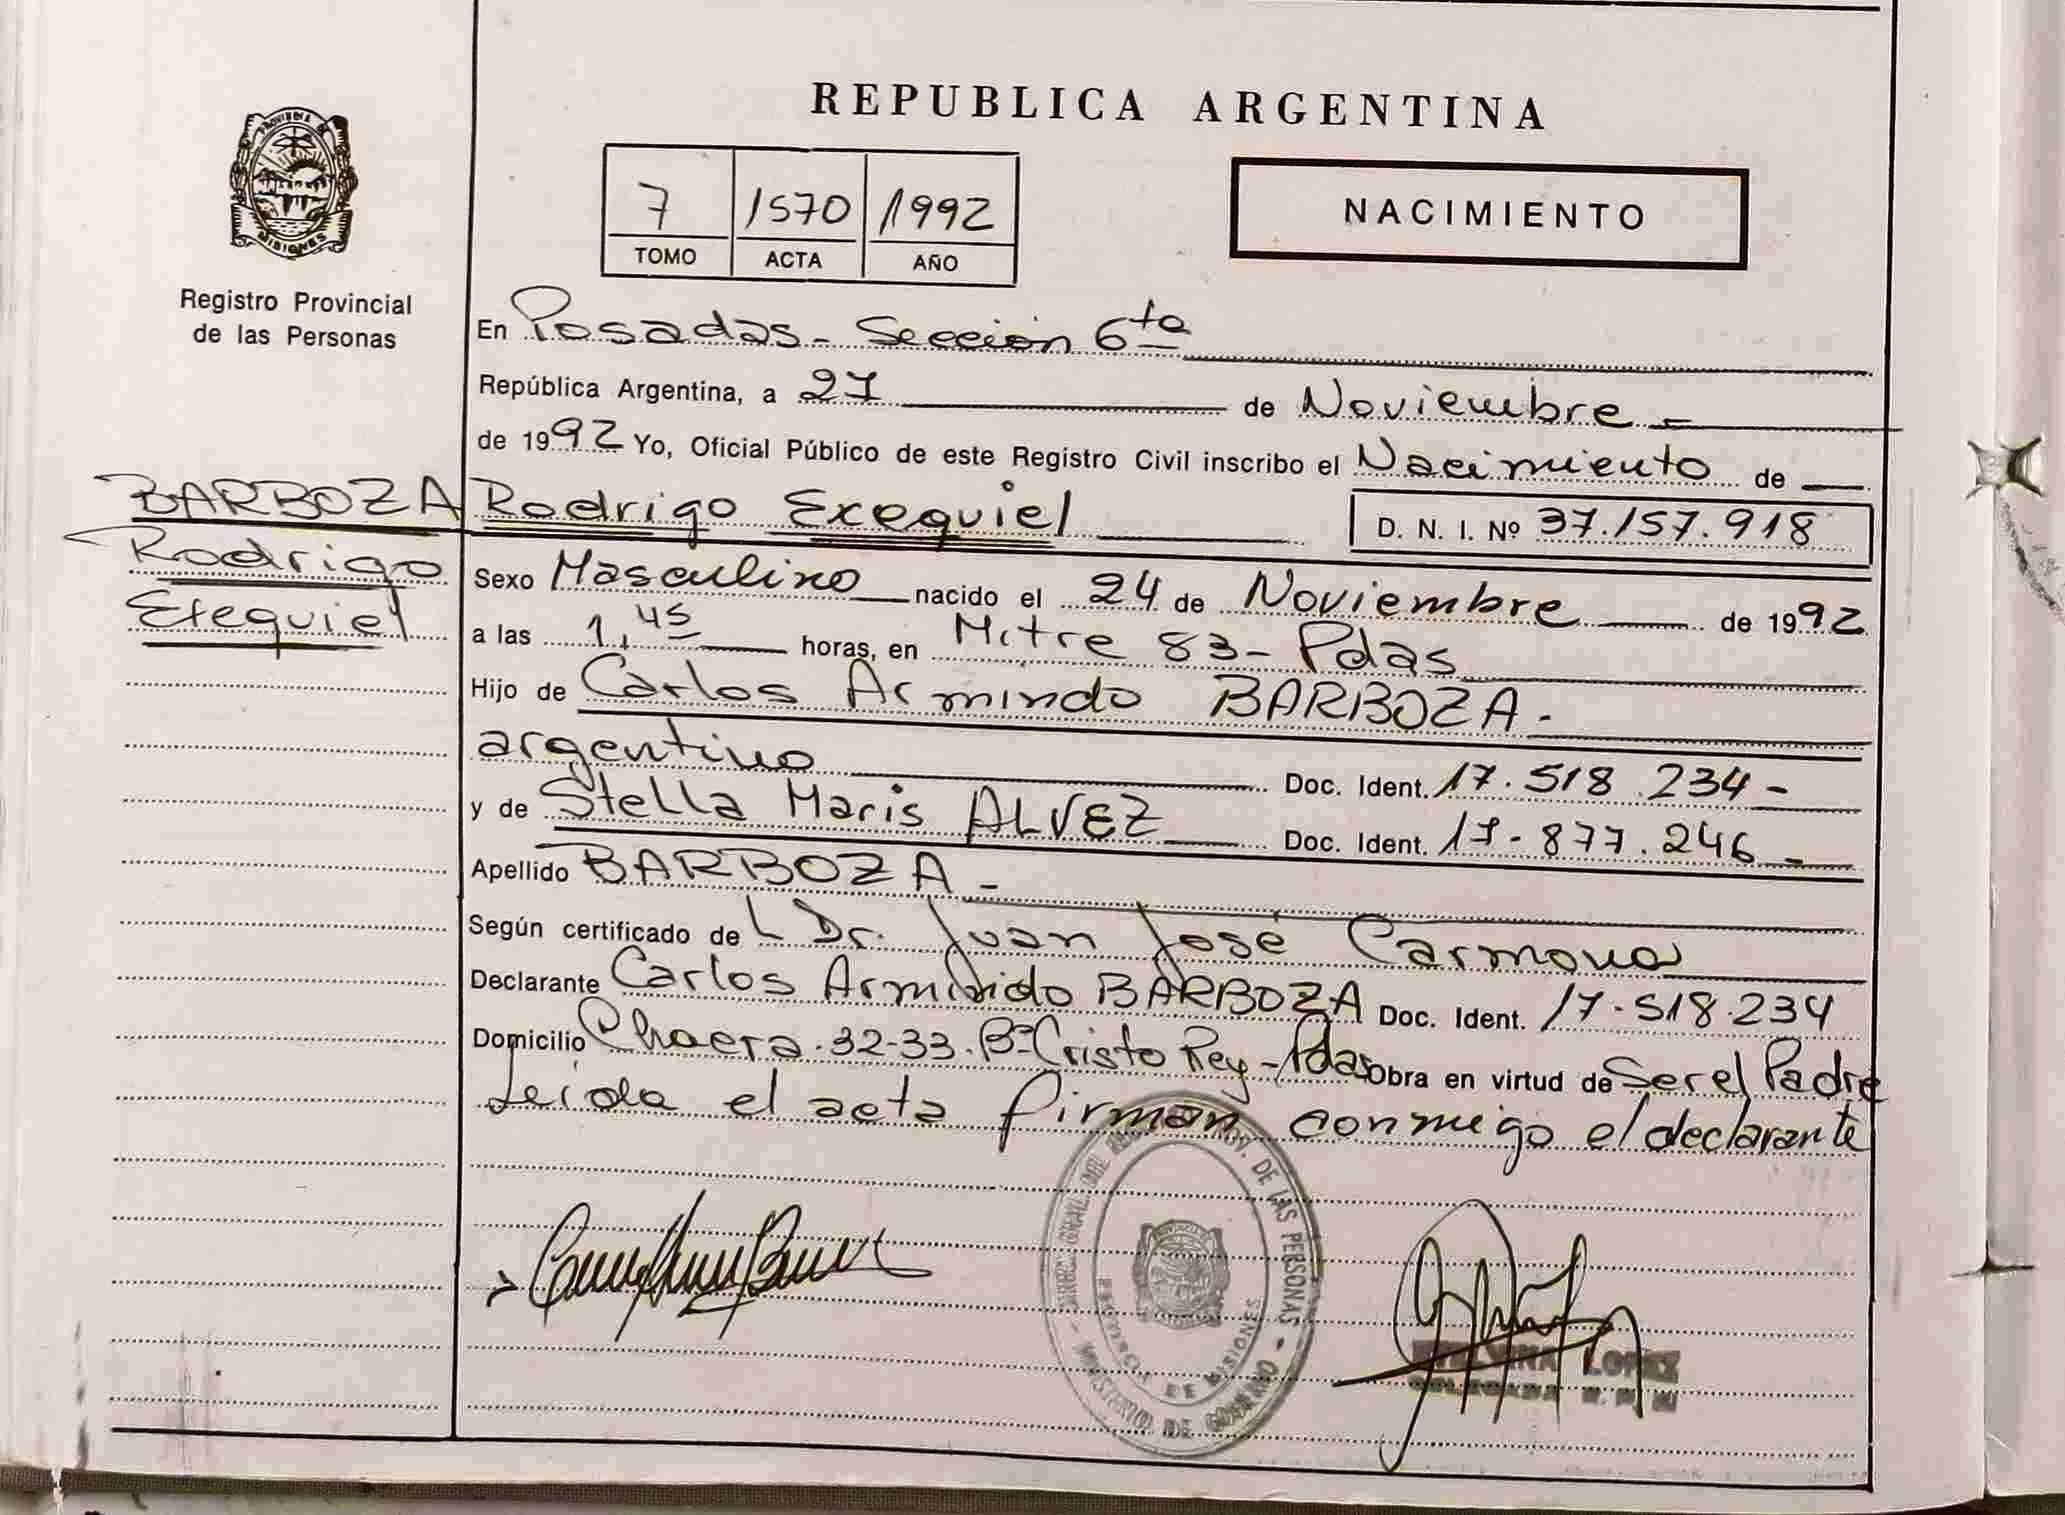 REPUBLICA ARGENTINA
PROVINCIA DE
MISIONES
Registro Provincial
de las Personas
7 1570 1992
TOMO ACTA AÑO
NACIMIENTO
En Posadas - Sección 6ta
República Argentina, a 27 de Noviembre -
de 1992 Yo, Oficial Público de este Registro Civil inscribo el Nacimiento de
BARBOZA Rodrigo Exequiel D. N. I. Nº 37.157.918
Rodrigo
Exequiel
Sexo Masculino nacido el 24 de Noviembre de 1992
a las 1,45 horas, en Mitre 83 - Pdas
Hijo de Carlos Armindo BARBOZA -
argentino Doc. Ident. 17.518.234 -
y de Stella Maris ALVEZ Doc. Ident. 17.877.246 -
Apellido BARBOZA -
Según certificado de L Dr. Juan José Carmona
Declarante Carlos Armindo BARBOZA Doc. Ident. 17.518.234
Domicilio 32-33. Bº Cristo Rey - Pdas Obra en virtud de Ser el Padre
Leida el acta firman conmigo el declarante
DIREC. GRAL. DEL PROV. DE LAS PERSONAS
MINISTERIO DE GOBIERNO
DE MISIONES
LOPEZ